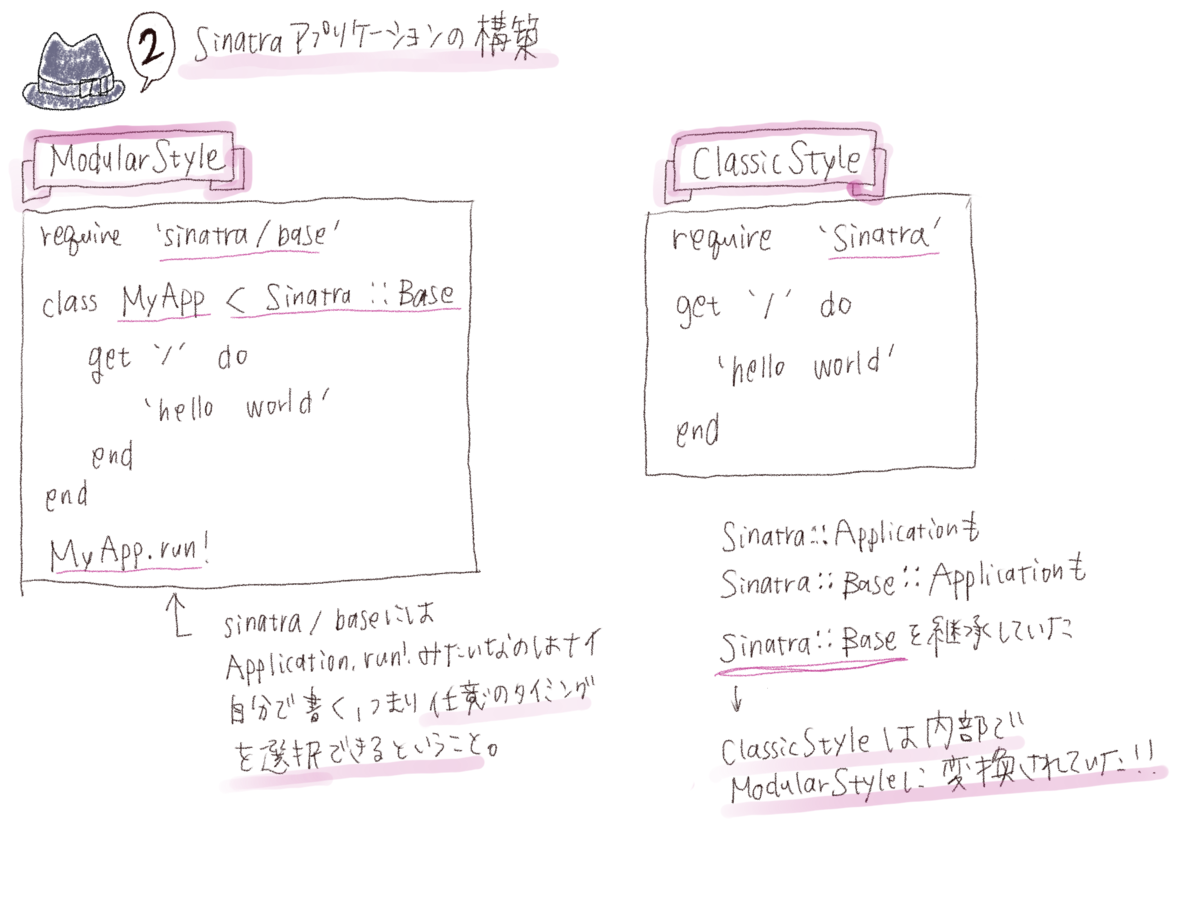 2
Sinatraアプリケーションの構築
ModularStyle
require 'sinatra/base'
class MyApp < Sinatra::Base
get '/' do
'hello world'
end
end
MyApp.run!
sinatra/baseには
Application.run!みたいなのはナイ
自分で書く,つまり任意のタイミング
を選択できるということ。
ClassicStyle
require 'Sinatra'
get '/' do
'hello world'
end
Sinatra::Applicationも
Sinatra::Base::Applicationも
Sinatra::Baseを継承していた
↓
ClassicStyleは内部で
ModularStyleに変換されていた!!